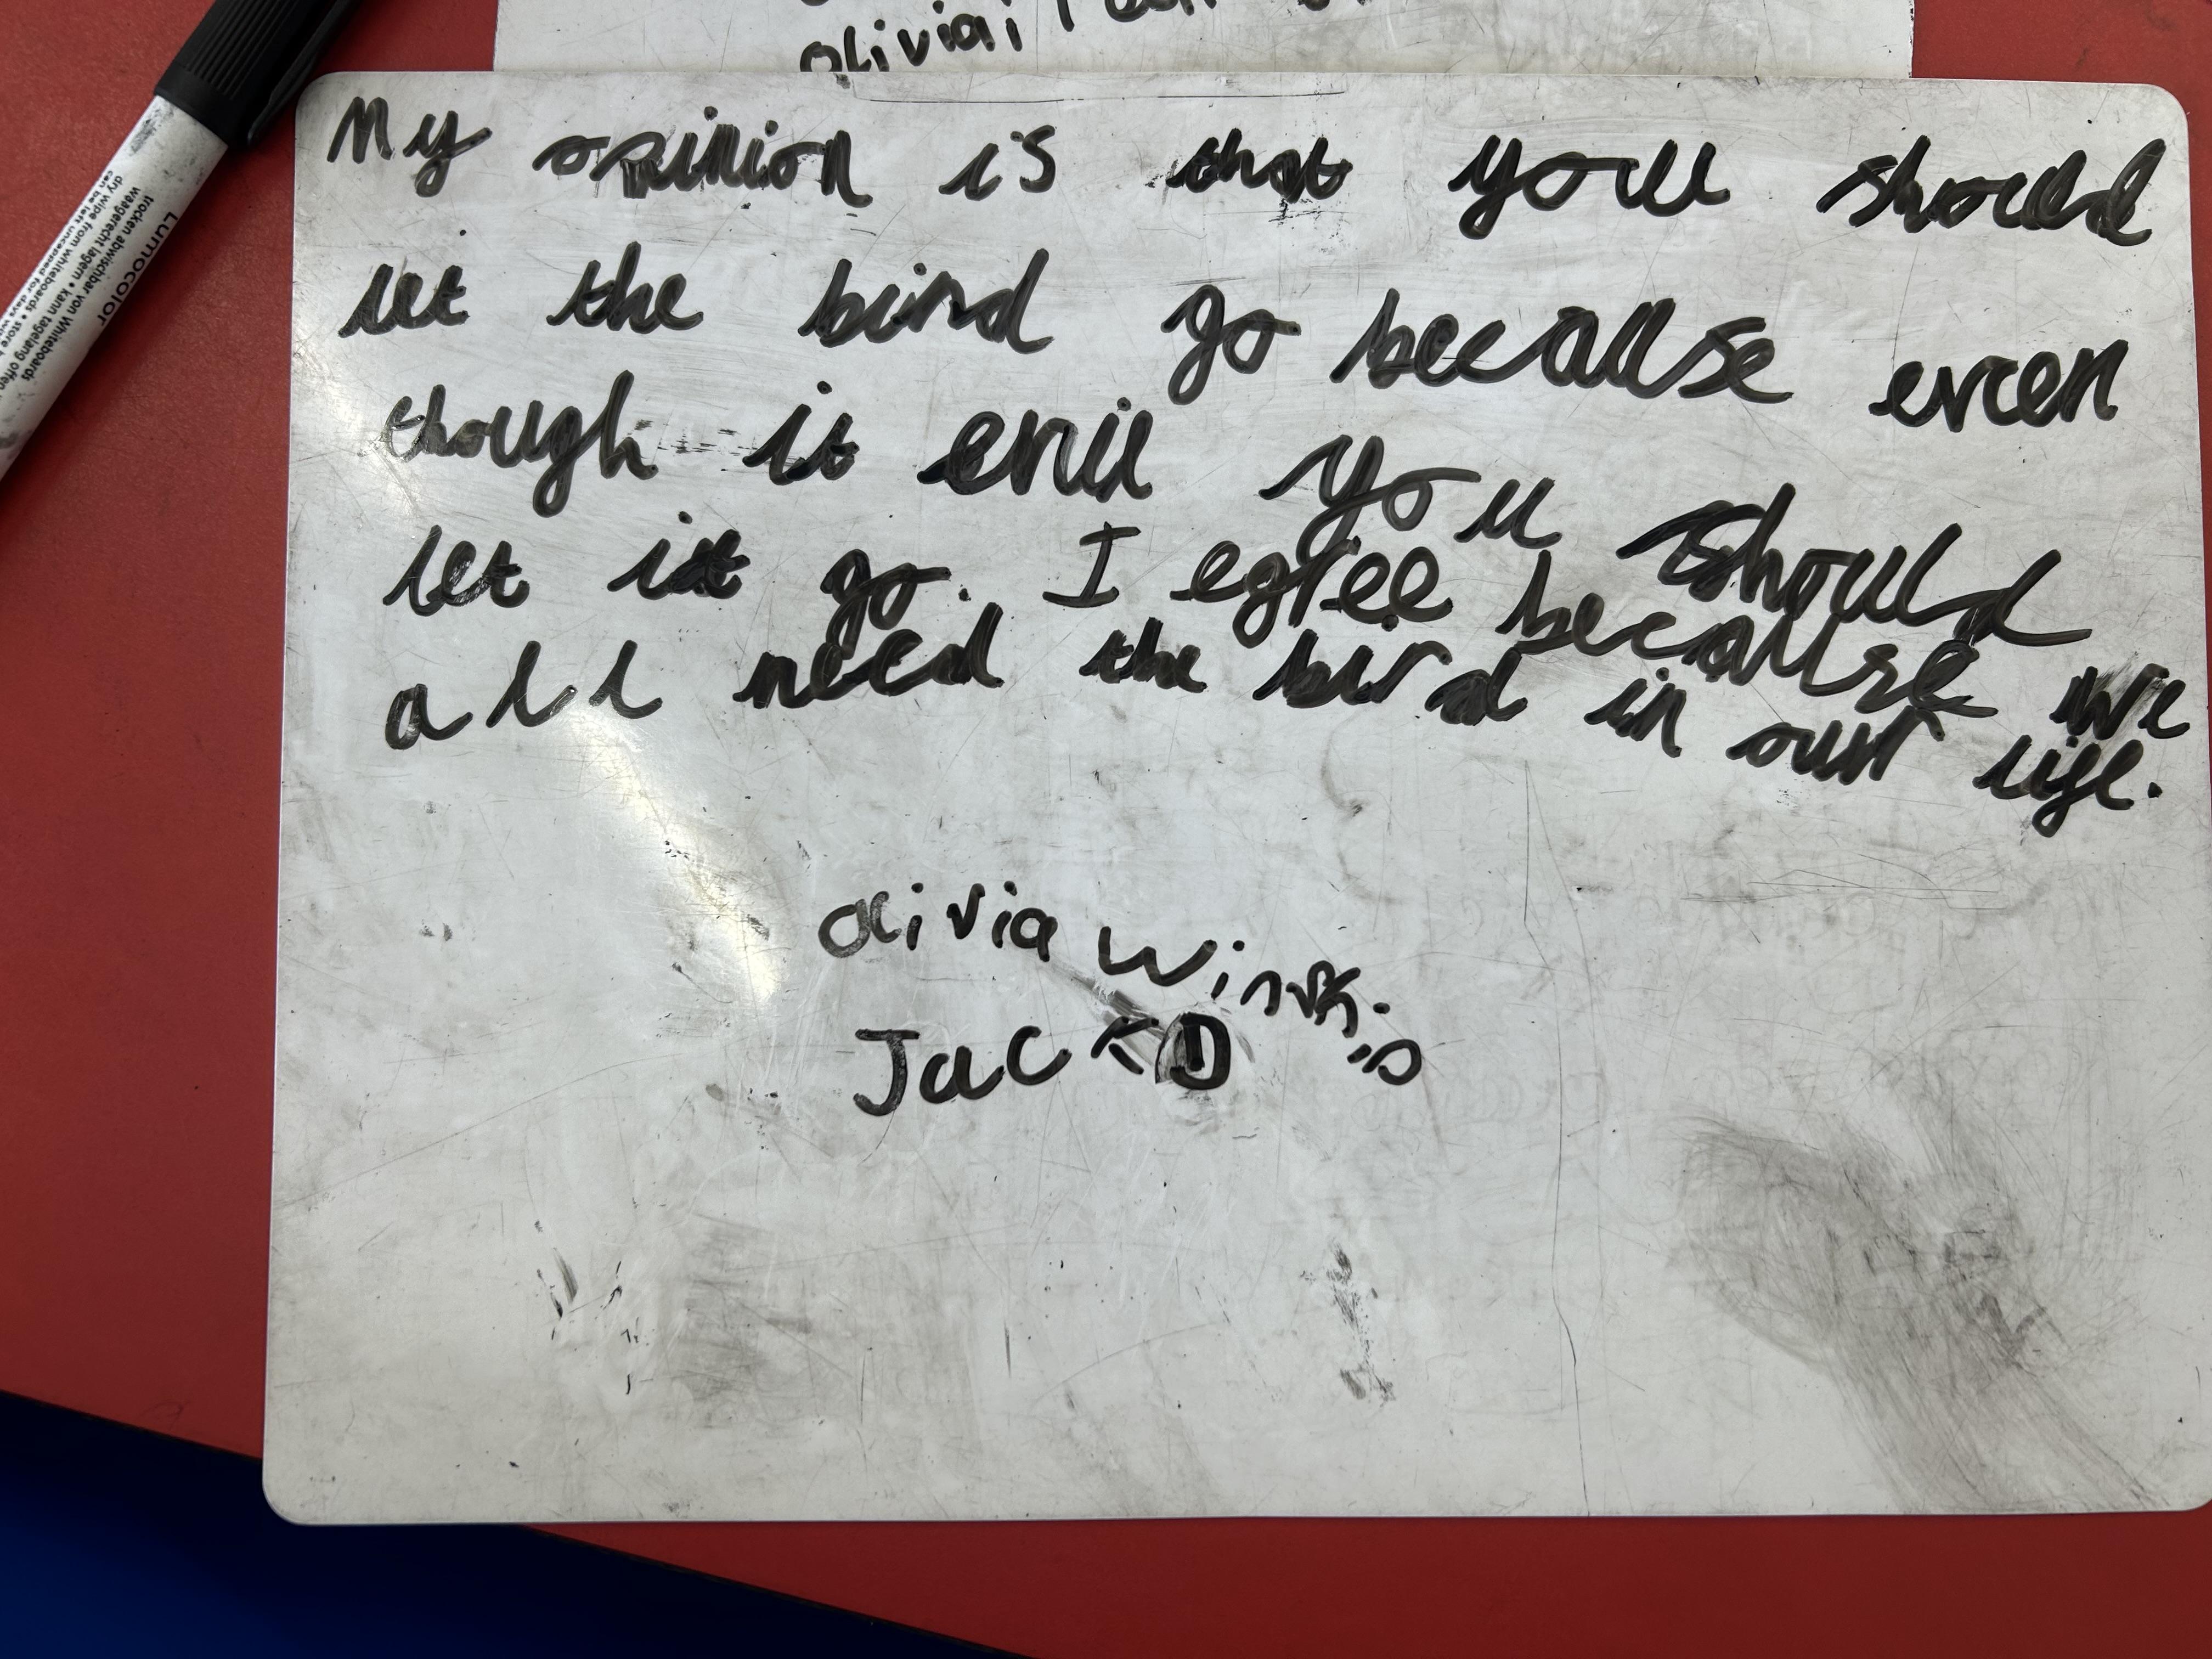 olivia,
My opinion is that you should
let the bird go because even
though it evil you should
let it go. I egree because we
all need the bird in our life.
olivia Wink.
;D
Jack D
Lumocolor
trocken abwischbar von Whiteboards
waagerecht lagern • kann tagelang offen
dry wipe from whiteboards • store
can be left uncapped for days